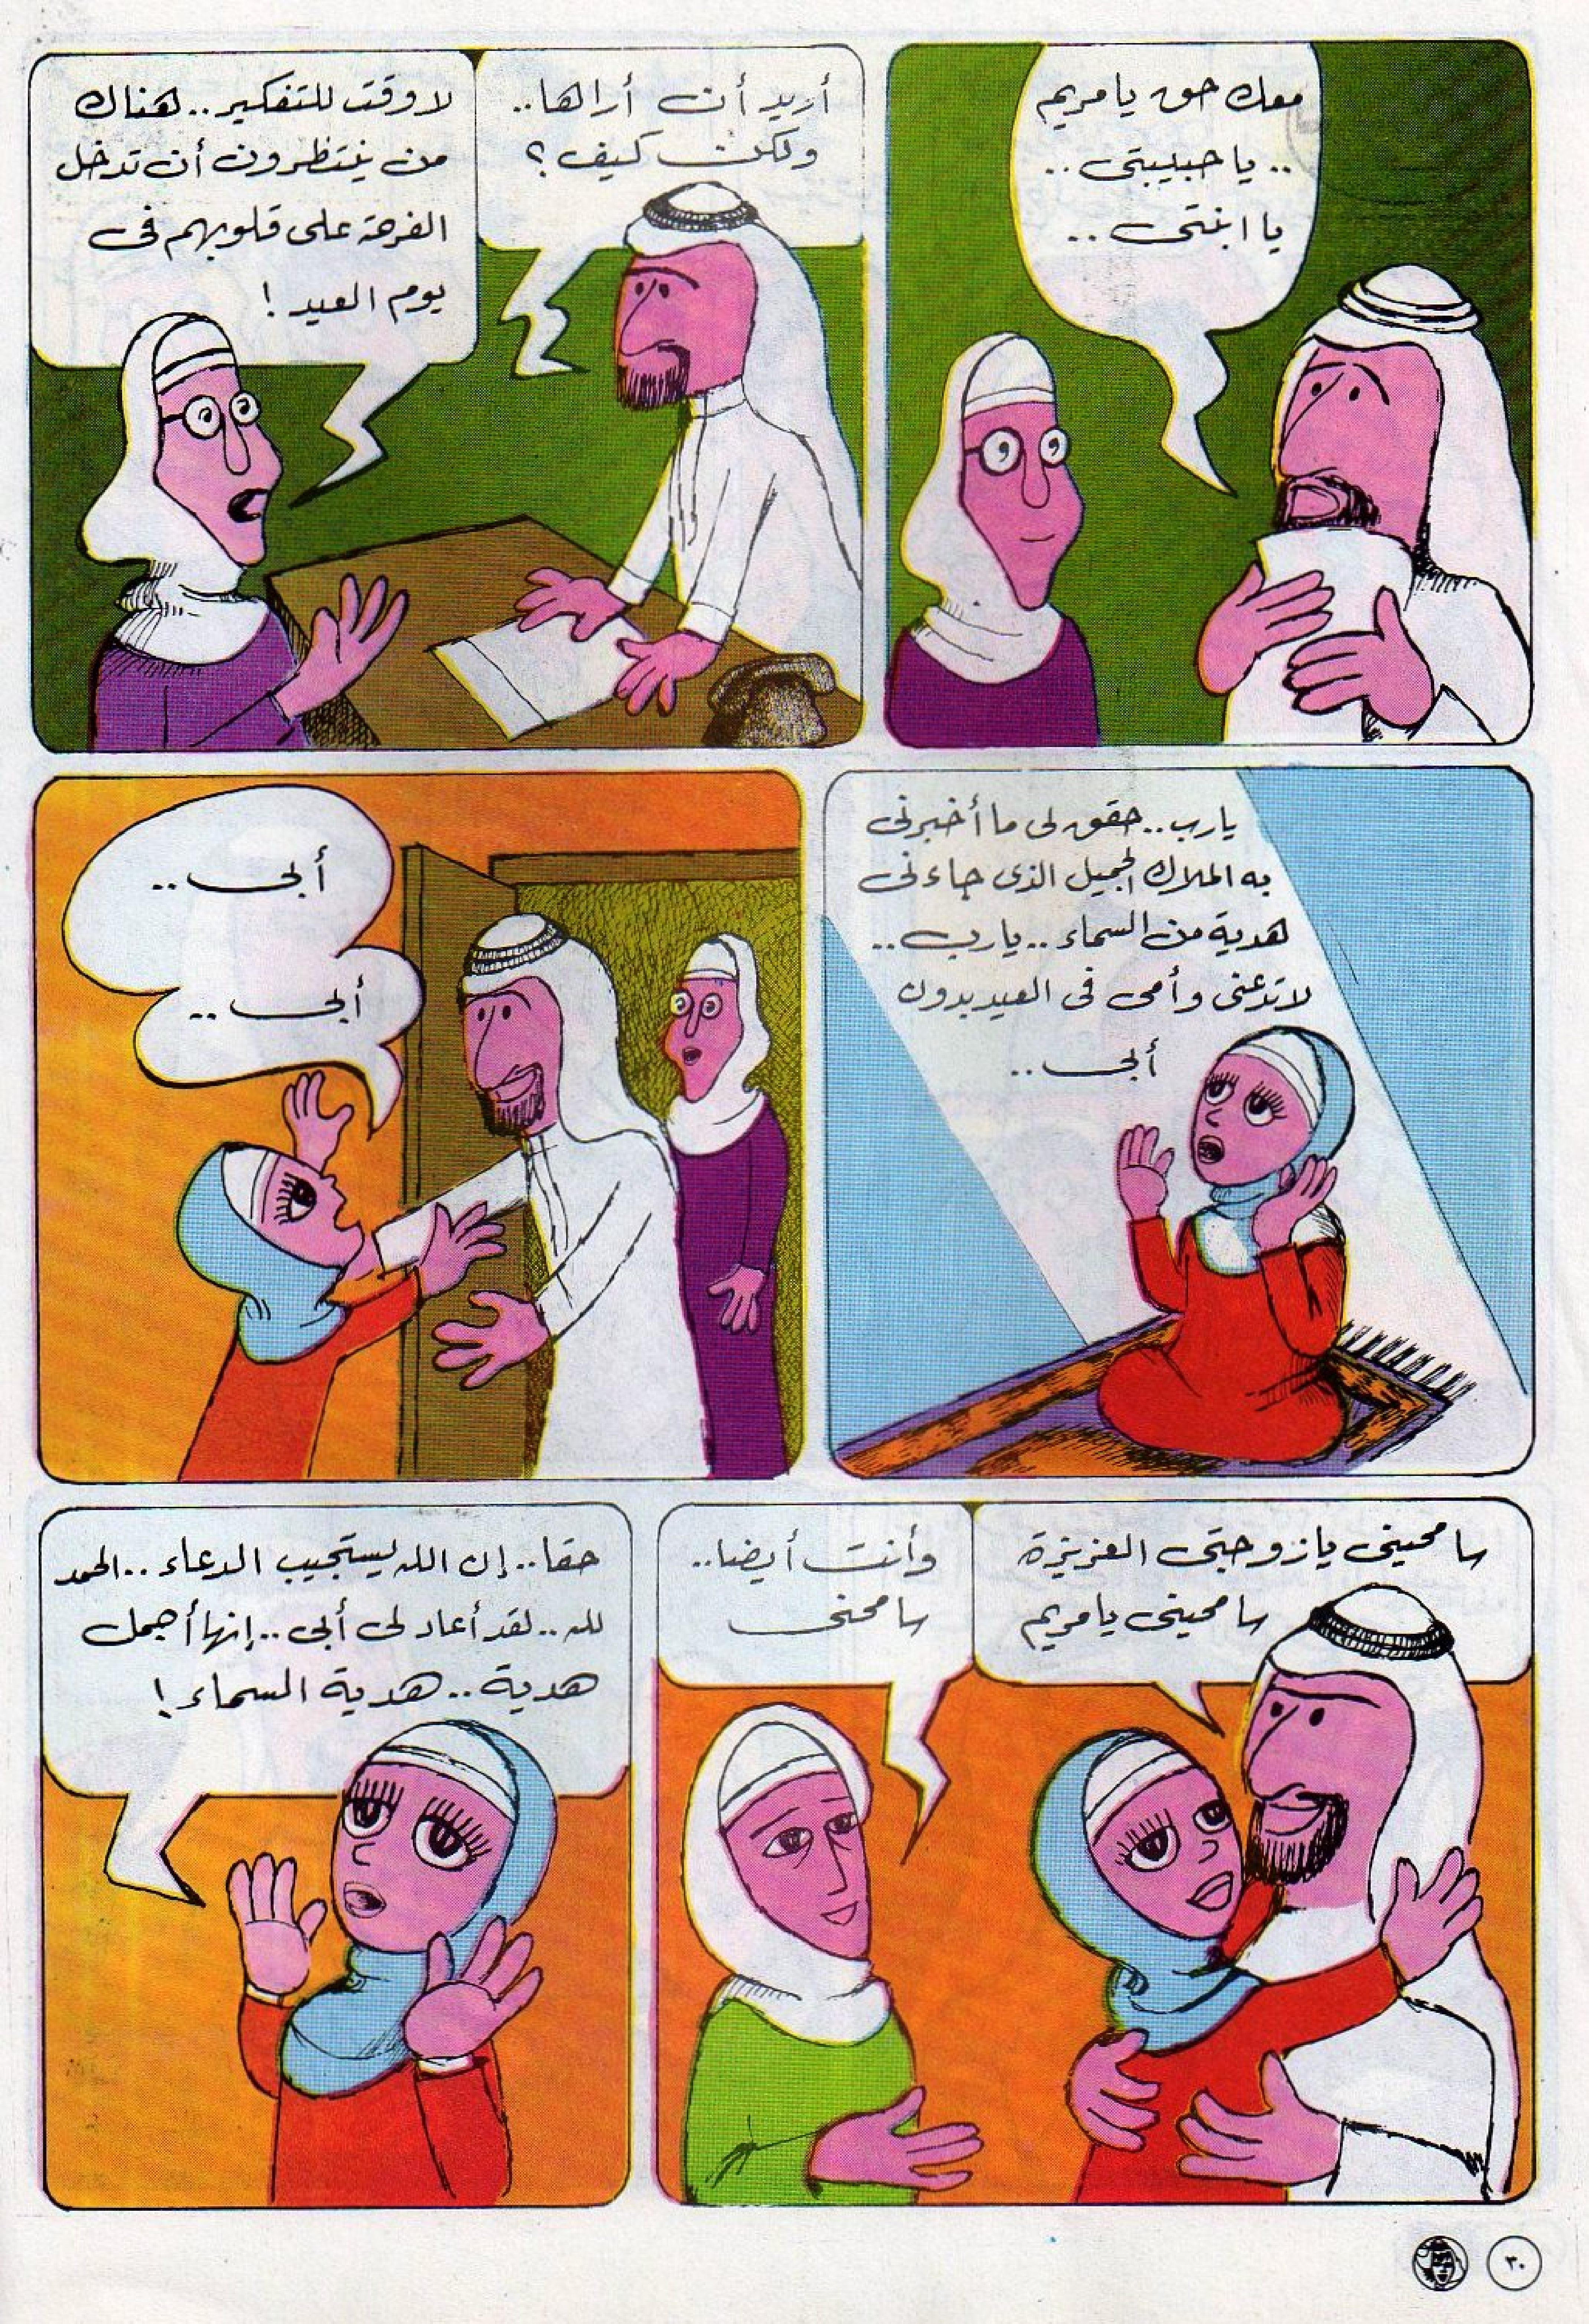 معك حق يا مريم
.. يا حبيبتى ..
يا ابنتى ..
أريد أن أراها..
ولكن كيف ؟
لا وقت للتفكير .. هناك
من ينتظرون أن تدخل
الفرحة على قلوبهم فى
يوم العيد !
يارب .. حقق لى ما أخبرنى
به الملاك الجميل الذى جاءنى
هدية من السماء .. يارب ..
لا تدعنى وأمى فى العيد بدون
أبى ..
أبى ..
أبى ..
سامحينى يا زوجتى العزيزة
سامحينى يا مريم
وأنت أيضا..
سامحنى
حقا .. إن الله يستجيب الدعاء .. الحمد
لله .. لقد أعاد لى أبى .. إنها أجمل
هدية .. هدية السماء !
٣٠